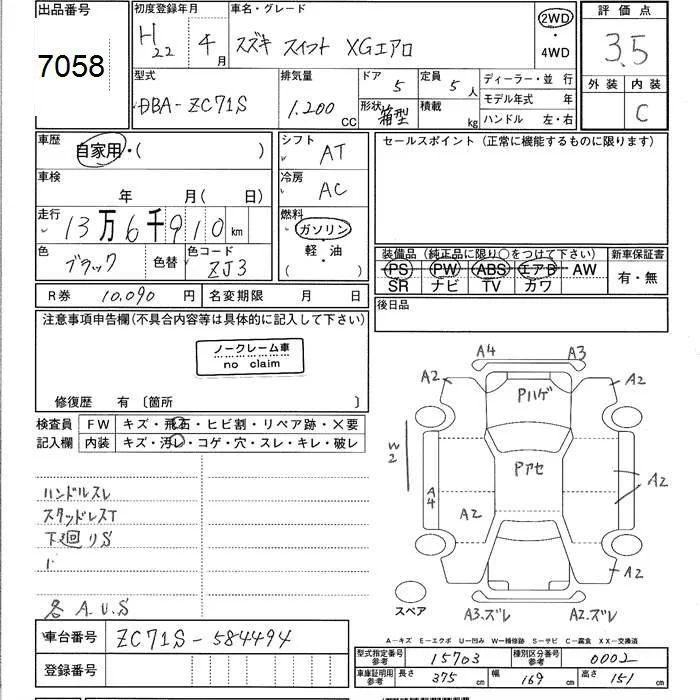 出品番号
7058
初度登録年月
H22 4月
車名・グレード
スズキ スイフト XGエアロ
2WD
・
4WD
評価点
3.5
外装 内装
C
型式
DBA-ZC71S
排気量
1.200 cc
ドア 5
形状 箱型
定員 5人
積載 kg
ディーラー・並 行
モデル年式 年
ハンドル 左・右
車歴
自家用・( )
車検
年 月(日)
走行
13万6千910km
色
ブラック
色替
色コード
ZJ3
シフト
AT
冷房
AC
燃料
ガソリン
・
軽・油
( )
セールスポイント (正常に機能するものに限ります)
装備品 (純正品に限り○をつけて下さい)
PS PW ABS エアB AW
SR ナビ TV カワ
新車保証書
有・無
R券 10,090 円
名変期限 月 日
後日品
注意事項申告欄(不具合内容等は具体的に記入して下さい)
ノークレーム車
no claim
修復歴 有 〔箇所 〕
検査員
記入欄
FW キズ・飛石・ヒビ割・リペア跡・×要
内装 キズ・汚レ・コゲ・穴・スレ・キレ・破レ
ハンドルスレ
スタッドレスT
下廻りS
各A.U.S
A4 A3
A2 A2
Pハゲ
W2
Pアセ
A4
A2
A2
A2
スペア
A3.ズレ A2.ズレ
A-キズ E-エクボ U-凹み W-補修跡 S-サビ C-腐食 XX-交換済
車台番号 ZC71S-584494
登録番号
型式指定番号
参考
15703
種別区分番号
参考
0002
車庫証明用
参考
長さ 375 cm
幅 169 cm
高さ 151 cm